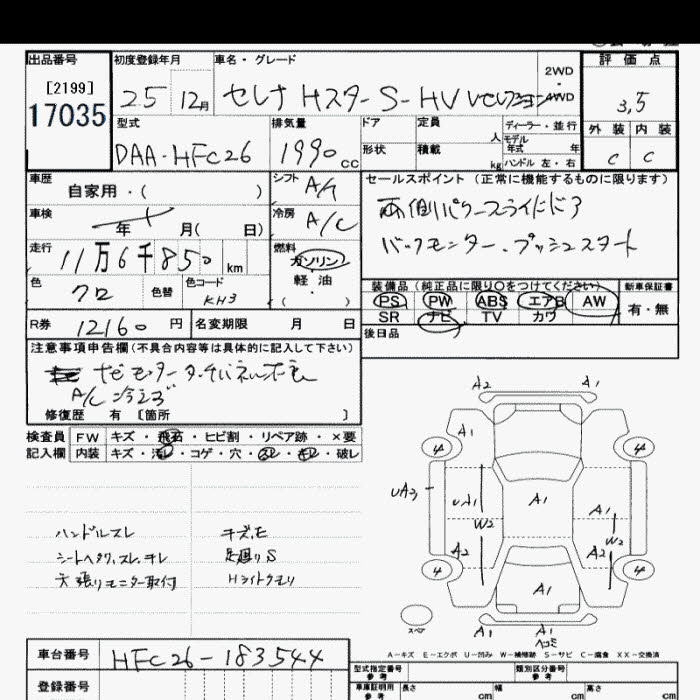 出品番号 初度登録年月 車名・グレード 評価点
[2199]
17035
25 12月 セレナ Hスター S-HV Vセレクション 2WD 4WD
3.5
型式 排気量 ドア 定員 人 ディーラー・並行 外装 内装
DAA-HFC26 1990cc 形状 積載 kg モデル年式 年 ハンドル 左・右 C C
車歴 自家用・( ) シフト A/T セールスポイント (正常に機能するものに限ります)
車検 年 月( 日) 冷房 A/C 両側パワースライドドア
バックモニター.プッシュスタート
走行 11万6千850km 燃料 ガソリン 軽油・( )
色 クロ 色替 色コード KH3
装備品 (純正品に限り○をつけてください) 新車保証書
PS PW ABS エアB AW 有・無
SR ナビ TV カワ
R券 12160円 名変期限 月 日 後日品
注意事項申告欄(不具合内容等は具体的に記入して下さい)
A/C 冷えず
修復歴 有 [箇所 ]
検査員 FW キズ・飛石・ヒビ割・リペア跡・×要
記入欄 内装 キズ・汚レ・コゲ・穴・スレ・キレ・破レ
ハンドルスレ キズ,E
足廻りS
天張りモニター取付 Hライトクモリ
A2 A1
A1
4 4
UA3 UA1 A1 A1
W2 W2
A2 A2
4 4
A1
スペア A1 A1
ヘコミ
A-キズ E-エクボ U-凹み W-補修跡 S-サビ C-腐食 XX-交換済
車台番号 HFC26-183544
型式指定番号 参考 類別区分番号 参考
登録番号
車庫証明用 参考 長さ cm 幅 cm 高さ cm